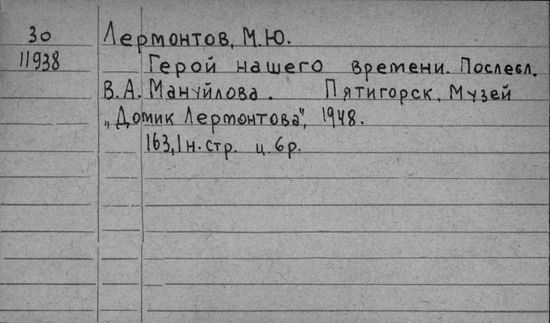 30 Лермонтов, М.Ю.
11938 Герой нашего времени. Послесл.
В.А. Мануйлова. Пятигорск. Музей
„Домик Лермонтова", 1948.
163,1 н. стр. ц. 6 р.